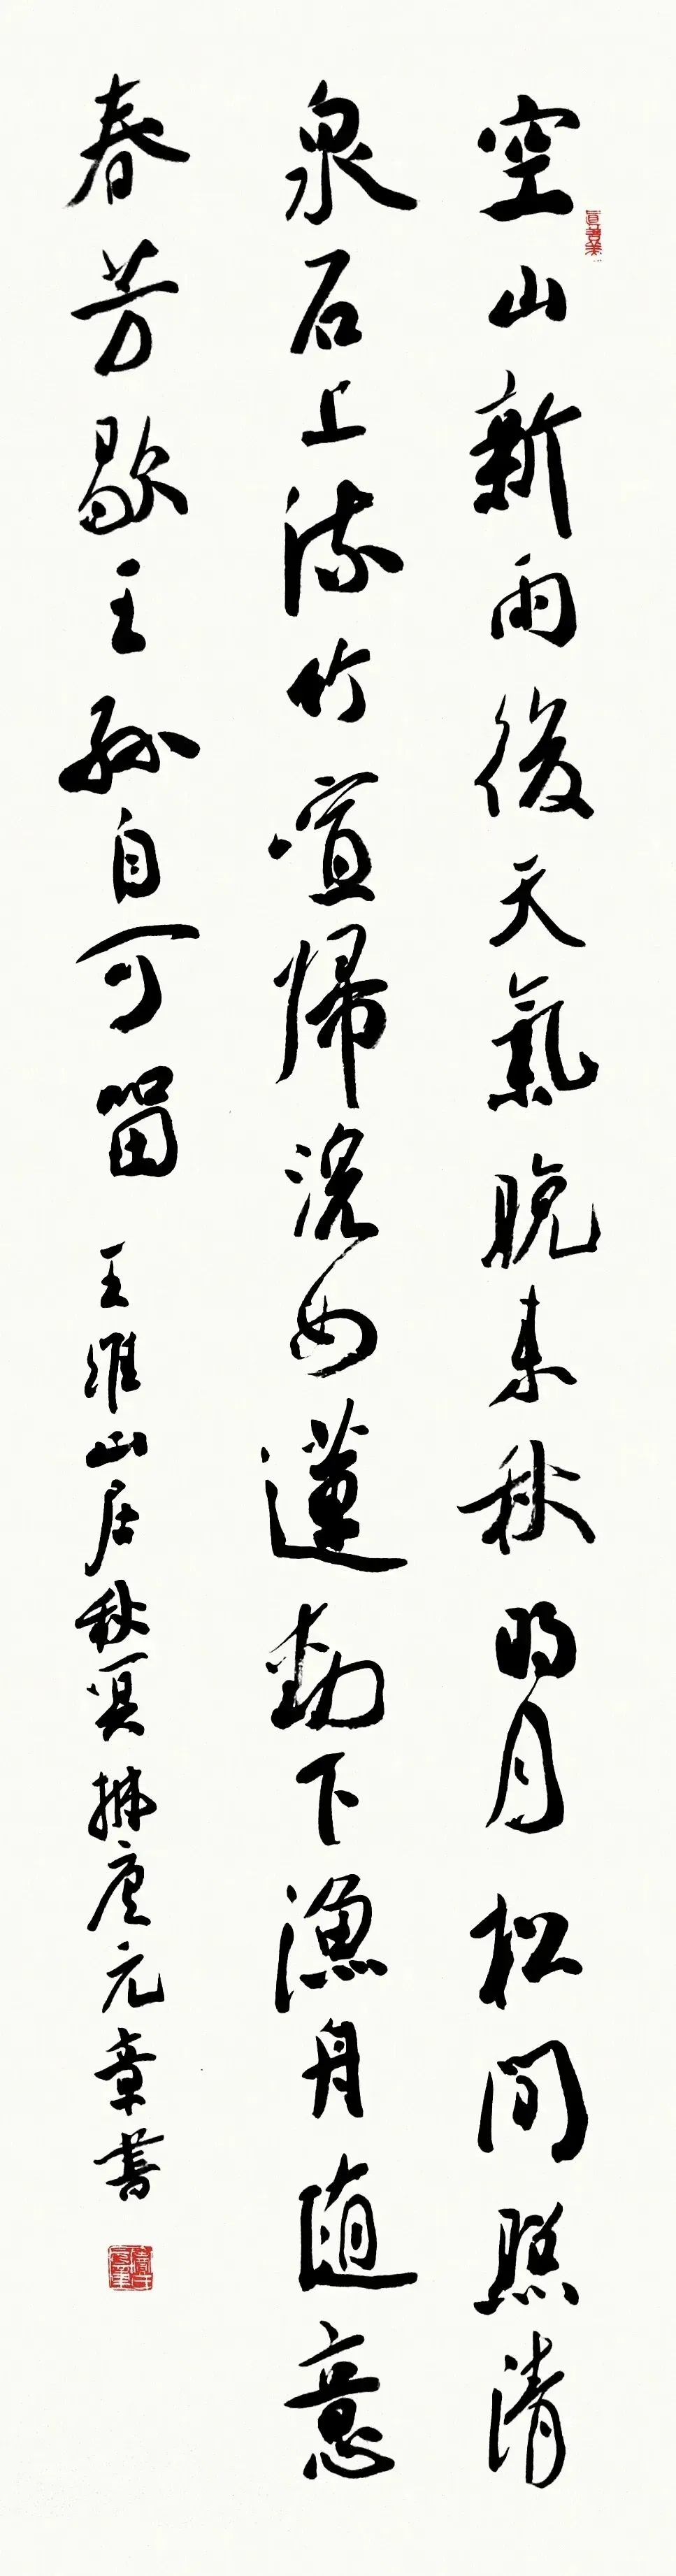 真善美
空山新雨後天氣晚来秋明月松間照清
泉石上流竹喧帰浣女蓮動下漁舟随意
春芳歇王孫自可留
王維山居秋冥 元章書